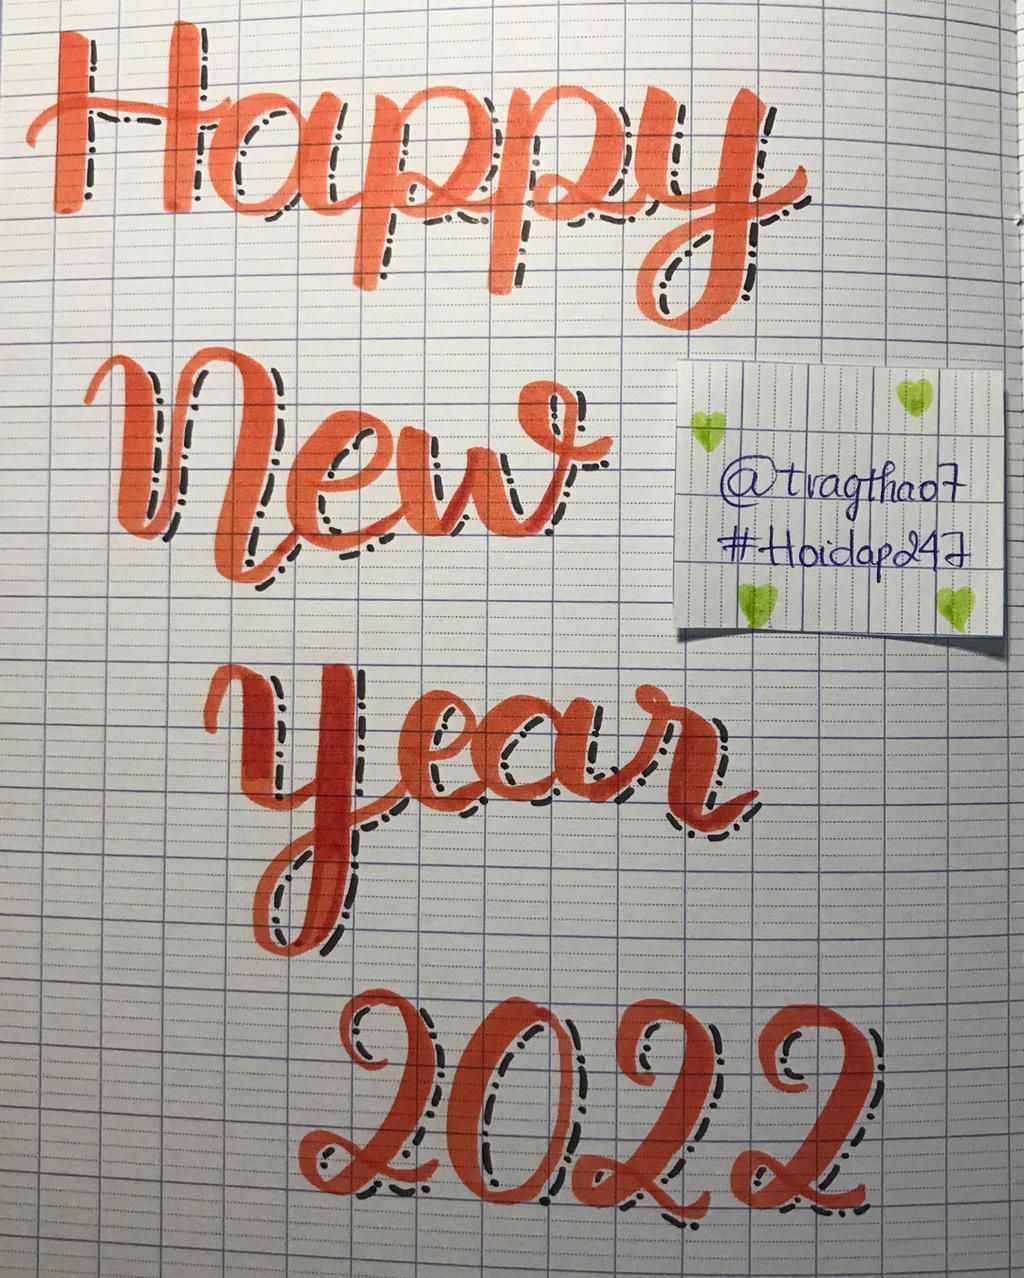 Happy
New
@tragthao7
#Hoidap247
Year
2022